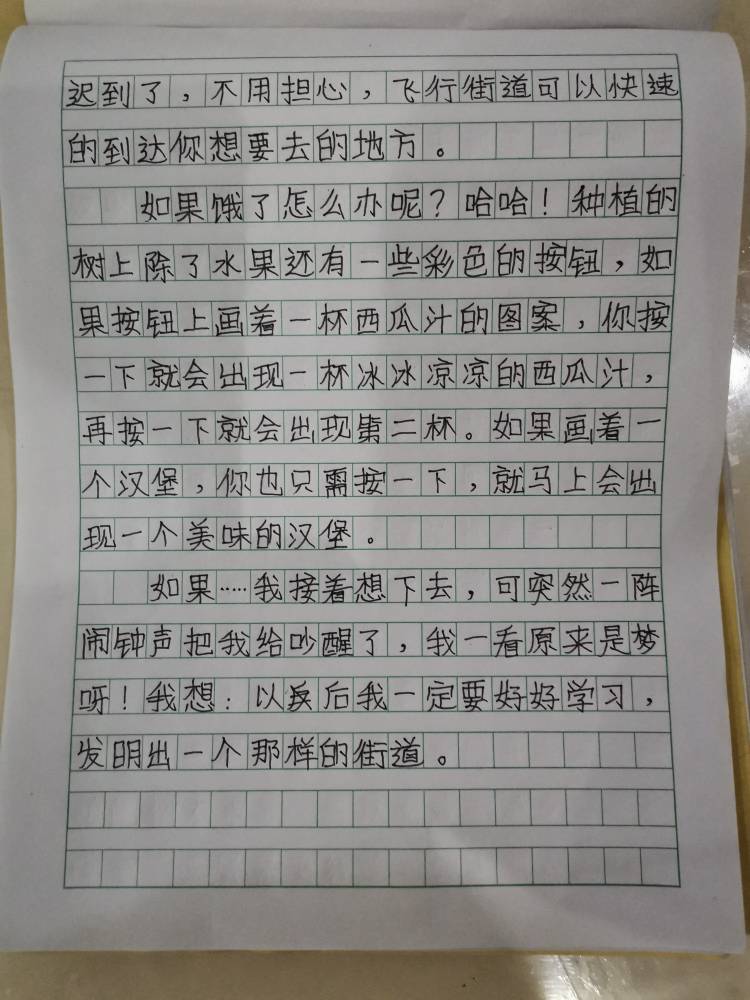 迟到了，不用担心，飞行街道可以快速
的到达你想要去的地方。
如果饿了怎么办呢？哈哈！种植的
树上除了水果还有一些彩色的按钮，如
果按钮上画着一杯西瓜汁的图案，你按
一下就会出现一杯冰冰凉凉的西瓜汁，
再按一下就会出现第二杯。如果画着一
个汉堡，你也只需按一下，就马上会出
现一个美味的汉堡。
如果……我接着想下去，可突然一阵
闹钟声把我给吵醒了，我一看原来是梦
呀！我想：以后我一定要好好学习，
发明出一个那样的街道。